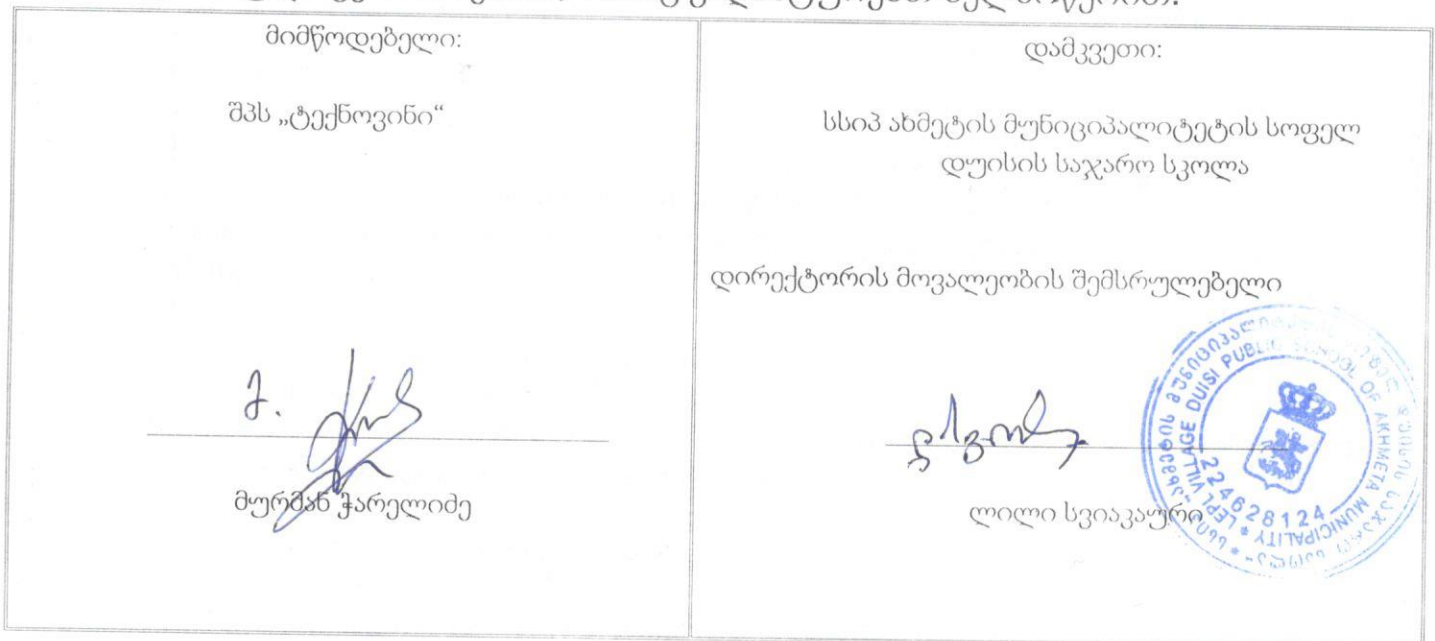 მიმწოდებელი:
შპს „ტექნოვინი“
მ.
მურმან ჭარელიძე
დამკვეთი:
სსიპ ახმეტის მუნიციპალიტეტის სოფელ
დუისის საჯარო სკოლა
დირექტორის მოვალეობის შემსრულებელი
ლილი სვიაკაური
LEPL VILLAGE DUISI PUBLIC SCHOOL OF AKHMETA MUNICIPALITY *
224628124